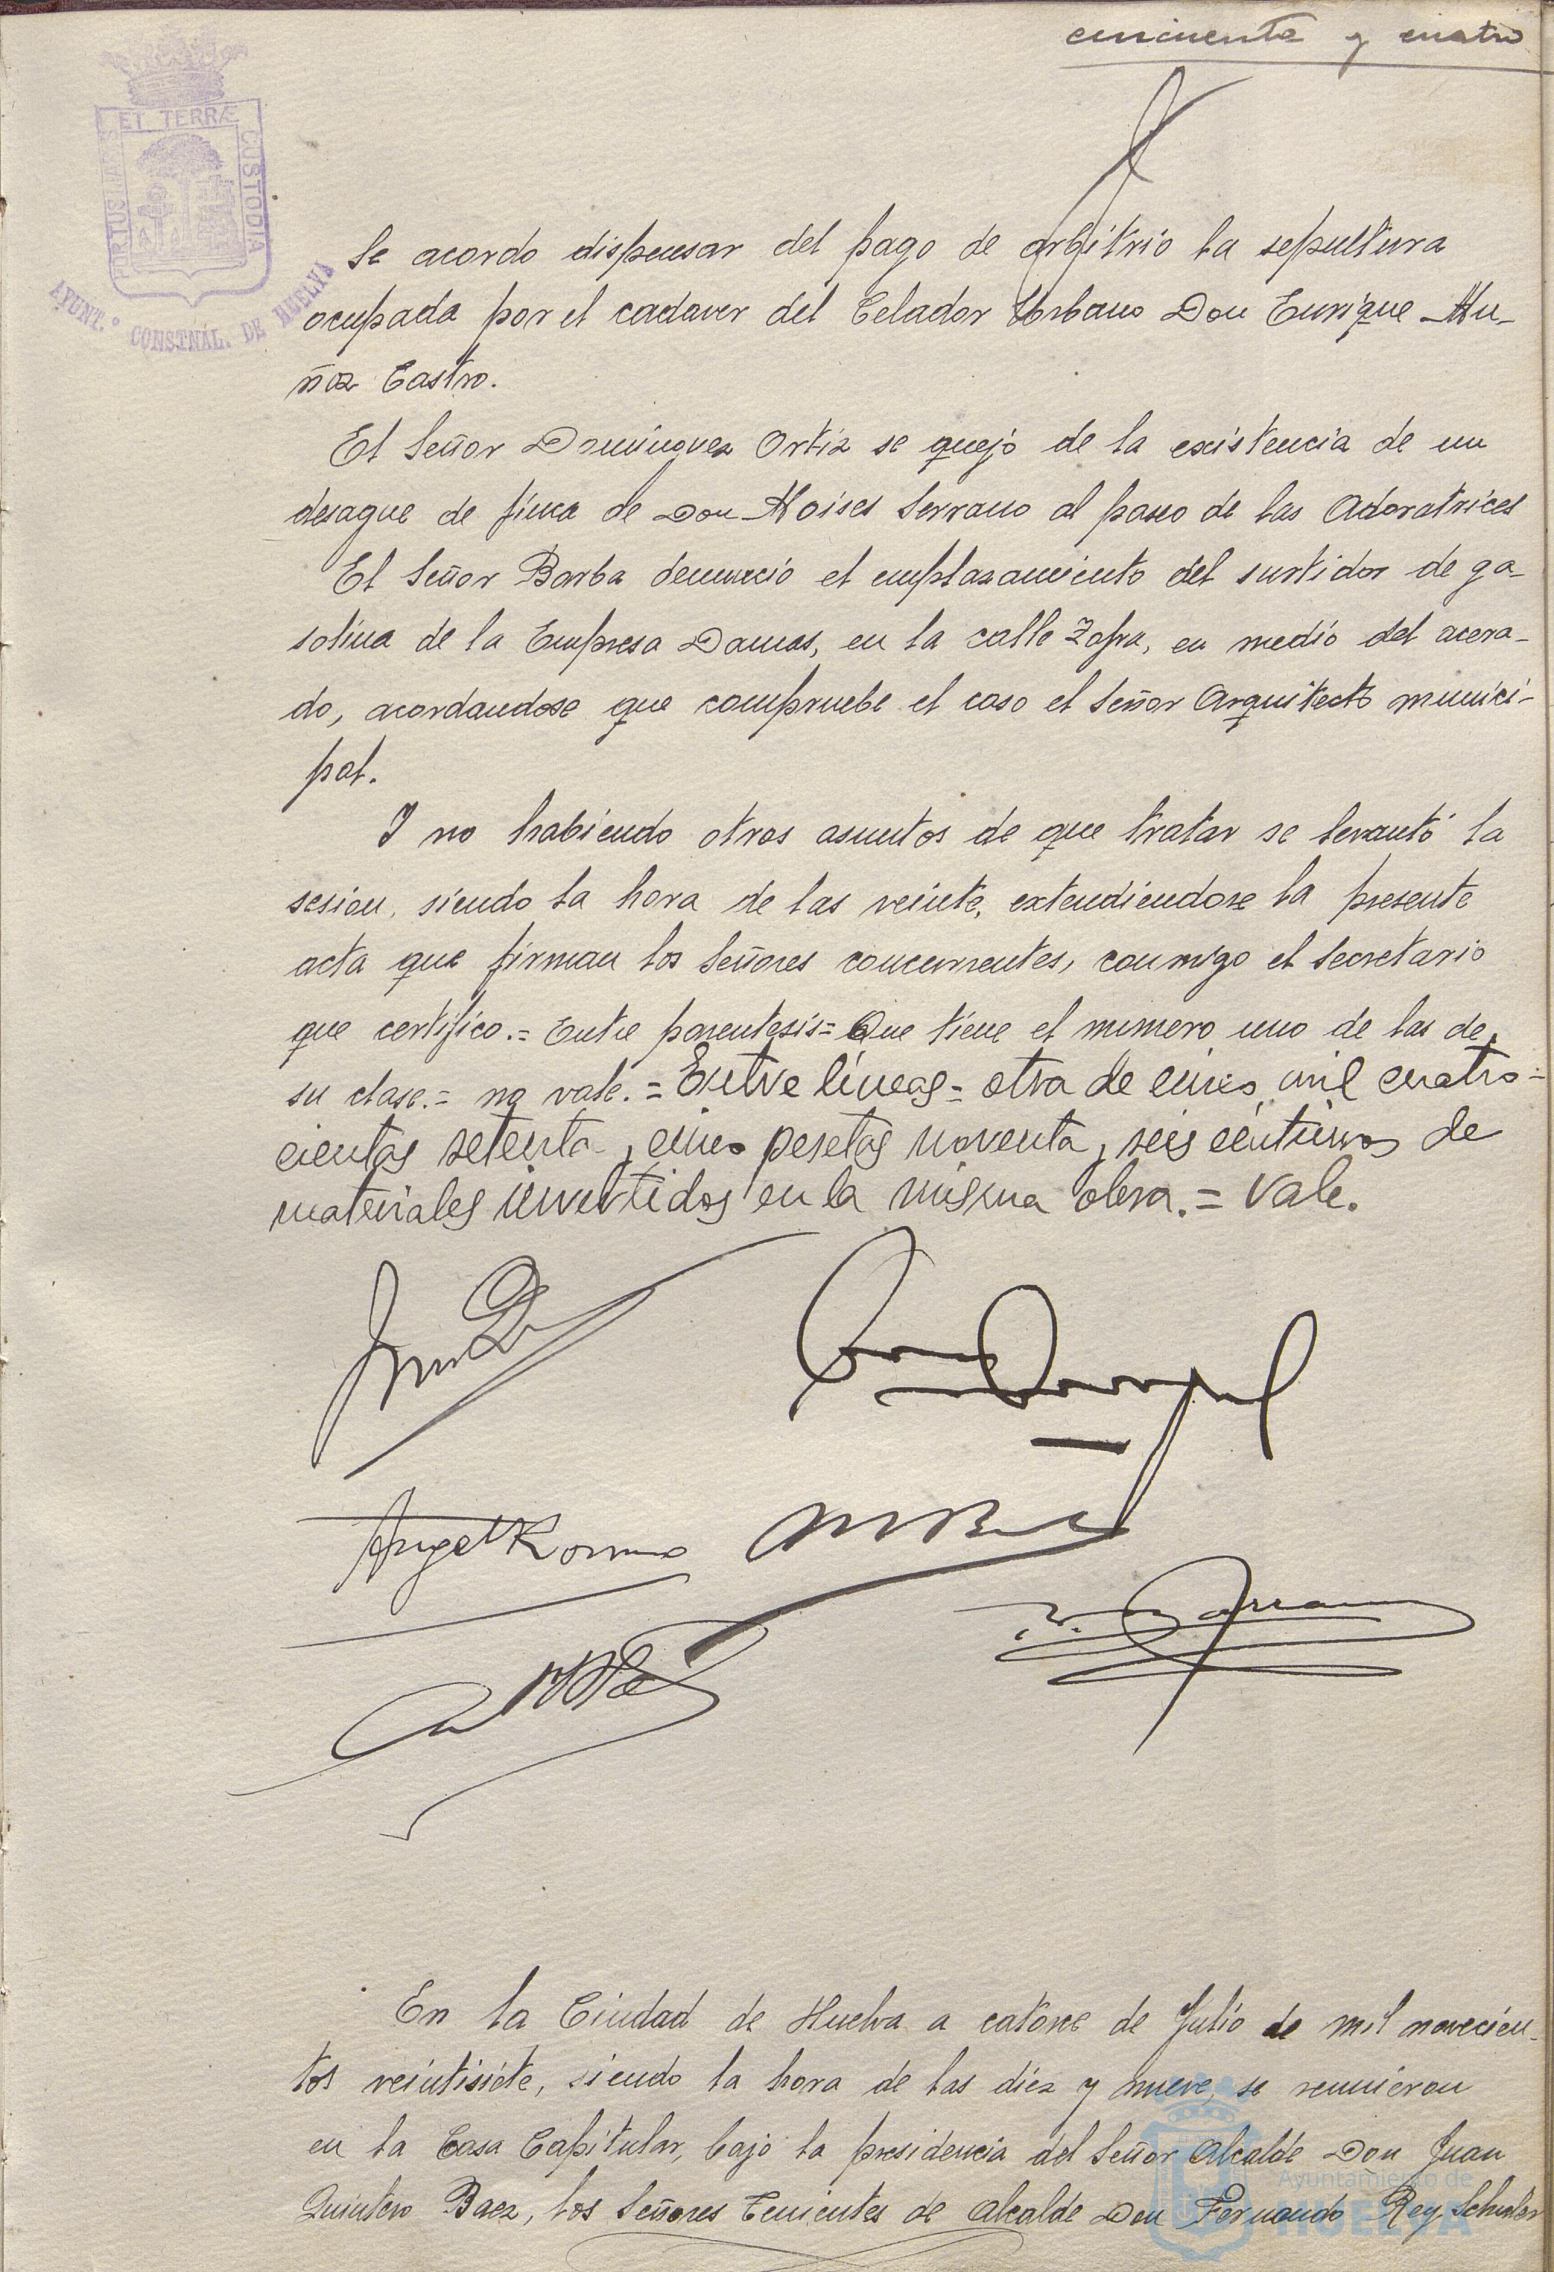 cincuenta y cuatro
ET TERRÆ
CUSTODIA
AYUNT.º CONSTNAL. DE HUELVA
Se acordo dispensar del pago de arbitrio la sepultura
ocupada por el cadaver del Celador Urbano Don Enrique Mu-
ñoz Castro.
El Señor Dominguez Ortiz se quejo de la existencia de un
desague de finca de Don Moises Serrano al paseo de las Adoratrices
El Señor Borba denuncio el emplazamiento del surtidor de ga-
solina de la Empresa Damas, en la calle Zafra, en medio del acera-
do, acordandose que compruebe el caso el Señor Arquitecto munici-
pal.
Y no habiendo otros asuntos de que tratar se levantó la
sesion, siendo la hora de las veinte, extendiendose la presente
acta que firman los Señores concurrentes, conmigo el Secretario
que certifico.= Entre parentesis= Que tiene el numero uno de las de
su clase.= no vale.= Entre líneas= otra de cinco mil cuatro-
cientas setenta y cinco pesetas noventa y seis céntimos de
materiales invertidos en la misma obra.= Vale.
Angel Romero
En la Ciudad de Huelva a catorce de Julio de mil novecien-
tos veintisiete, siendo la hora de las diez y nueve, se reunieron
en la Casa Capitular, bajo la presidencia del Señor Alcalde Don Juan
Quintero Baez, los Señores Tenientes de Alcalde Don Fernando Rey Schuler
Ayuntamiento de
HUELVA